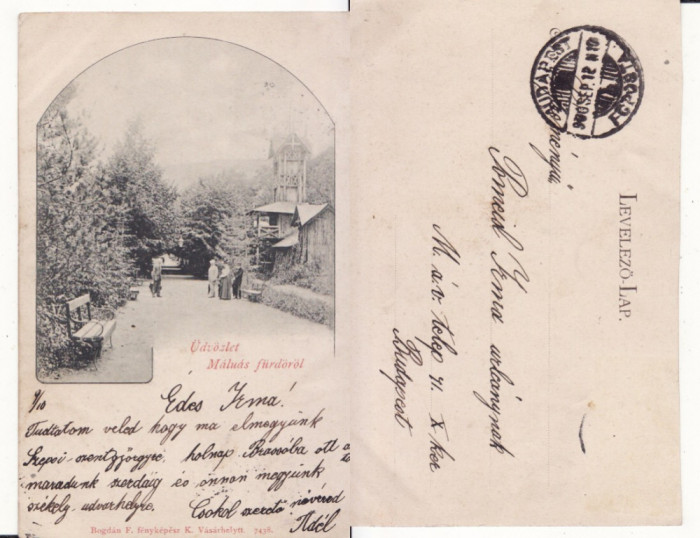 Üdvözlet
Málnás fürdőről
9/10
Édes Irma!
Tudtatom veled hogy ma elmegyünk
Szepsi-szentgyörgyre, holnap Brassóba ott
maradunk szerdáig és onnan megyünk
székely-udvarhelyre.
Csokol szerető nővéred
Adél
Bogdán F. fényképész K. Vásárhelytt. 7438.
LEVELEZŐ-LAP.
Irma urleánynak
M. á. v. telep VI. X ker
Budapest
BUDAPEST